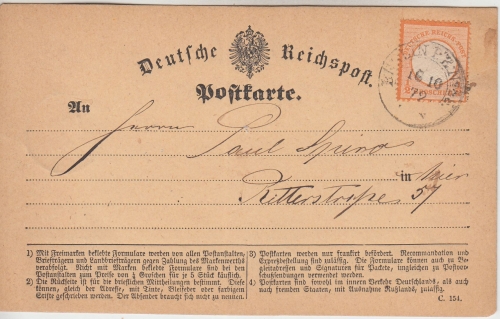 Deutsche Reichspost.
Postkarte.
An
Herrn
Paul
in
Ritterstraße 57
1) Mit Freimarken beklebte Formulare werden von allen Postanstalten, Briefträgern und Landbriefträgern gegen Zahlung des Markenwerths verabfolgt. Nicht mit Marken beklebte Formulare sind bei den Postanstalten zum Preise von ¼ Groschen für je 5 Stück käuflich.
2) Die Rückseite ist für die brieflichen Mittheilungen bestimmt. Diese können, gleich der Adresse, mit Tinte, Bleifeder oder farbigem Stifte geschrieben werden. Der Absender braucht sich nicht zu nennen.
3) Postkarten werden nur frankirt befördert. Recommandation und Expreßbestellung sind zulässig. Die Formulare können auch zu Begleitadressen und Signaturen für Packete, ungleichen zu Postvorschußsendungen verwendet werden.
4) Postkarten sind sowohl im innern Verkehr Deutschlands, als auch nach fremden Staaten, mit Ausnahme Rußlands, zulässig.
C. 154.
16 10